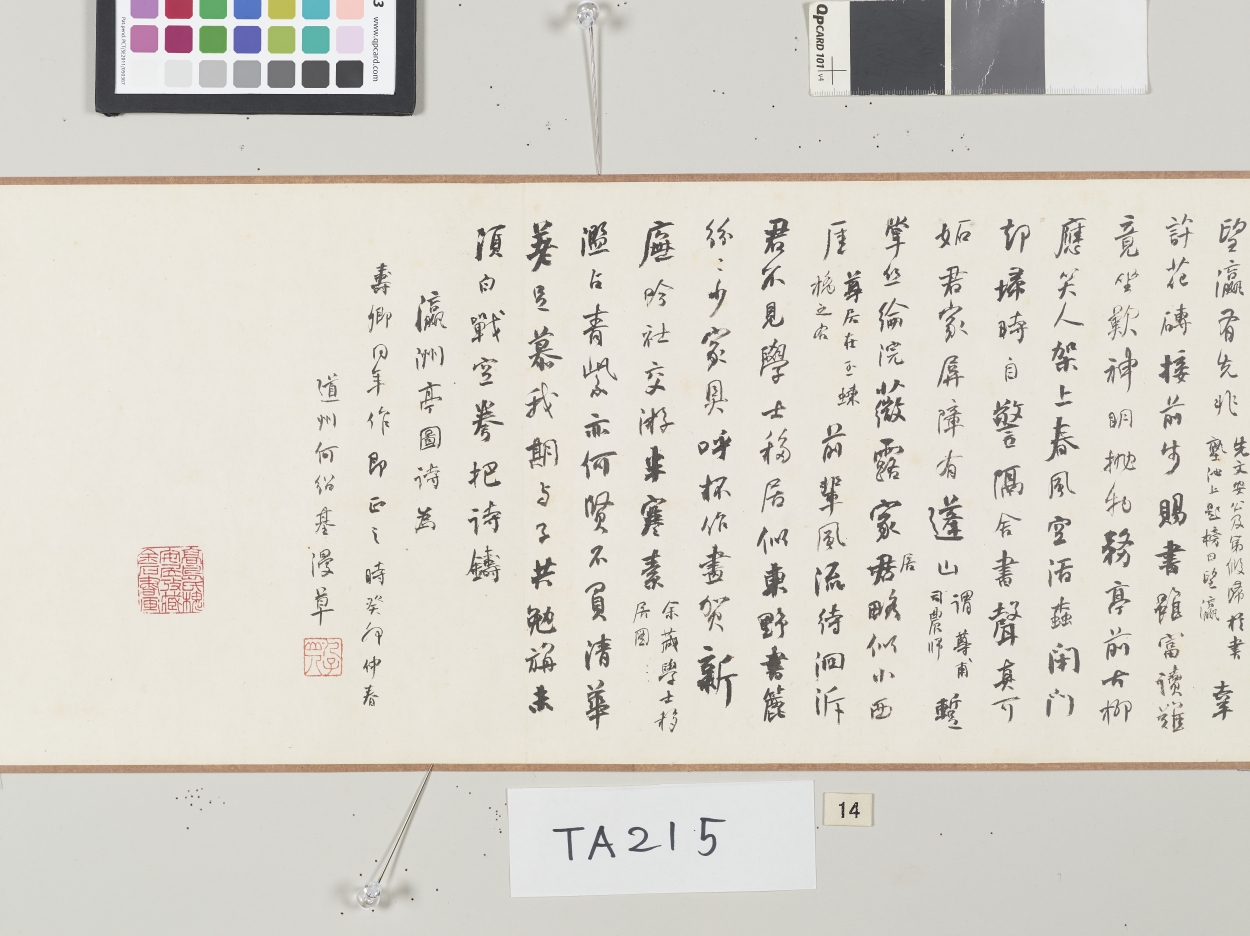 望瀛看先兆
先文安公及弟假歸於書
塾池上題榜曰望瀛
幸
許花磚接前步賜書雖富讀難
竟坐歎神明拋牝務亭前古柳
應笑人架上春風空活蠹閑門
却埽時自警隔舍書聲真可
妬君家屏障有蓬山
謂尊甫
司農師
蹔
掌絲綸院薇露家君居略似小西
厓
尊居在玉蝀
橋之右
前輩風流待洄泝
君不見學士移居似東野書簏
紛〻少家具呼杯作畫賀新
廡吟社交游半寒素
余藏學士移
居圖
濫占青紫亦何賢不負清華
差足慕我期与子共勉旃未
須白戰空拳把詩鑄
瀛洲亭圖詩為
壽卿同年作即正之時癸卯仲春
道州何紹基漫草
子貞
www.qpcard.com
QPCARD 101 v4
TA215
14